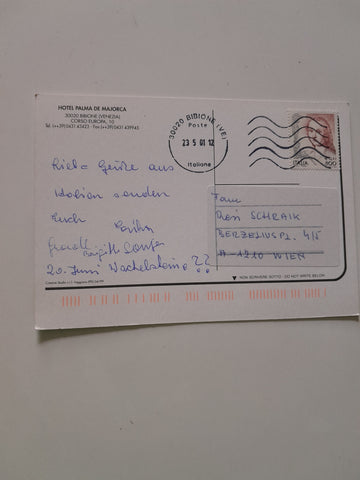 HOTEL PALMA DE MAJORCA
30020 BIBIONE (VENEZIA)
CORSO EUROPA, 10
Tel. (++39)0431 43423 - Fax (++39)0431 439945
30020 BIBIONE (VE)
Poste
23 5 01 12
Italiane
ITALIA
800
Liebe Grüße aus
Italien senden
Euch
Brigitt
20. Juni Wachelsteine ??
Fam
SCHRAIK
BERZELIUSPL. 4/5
A-1210 WIEN
NON SCRIVERE SOTTO - DO NOT WRITE BELOW